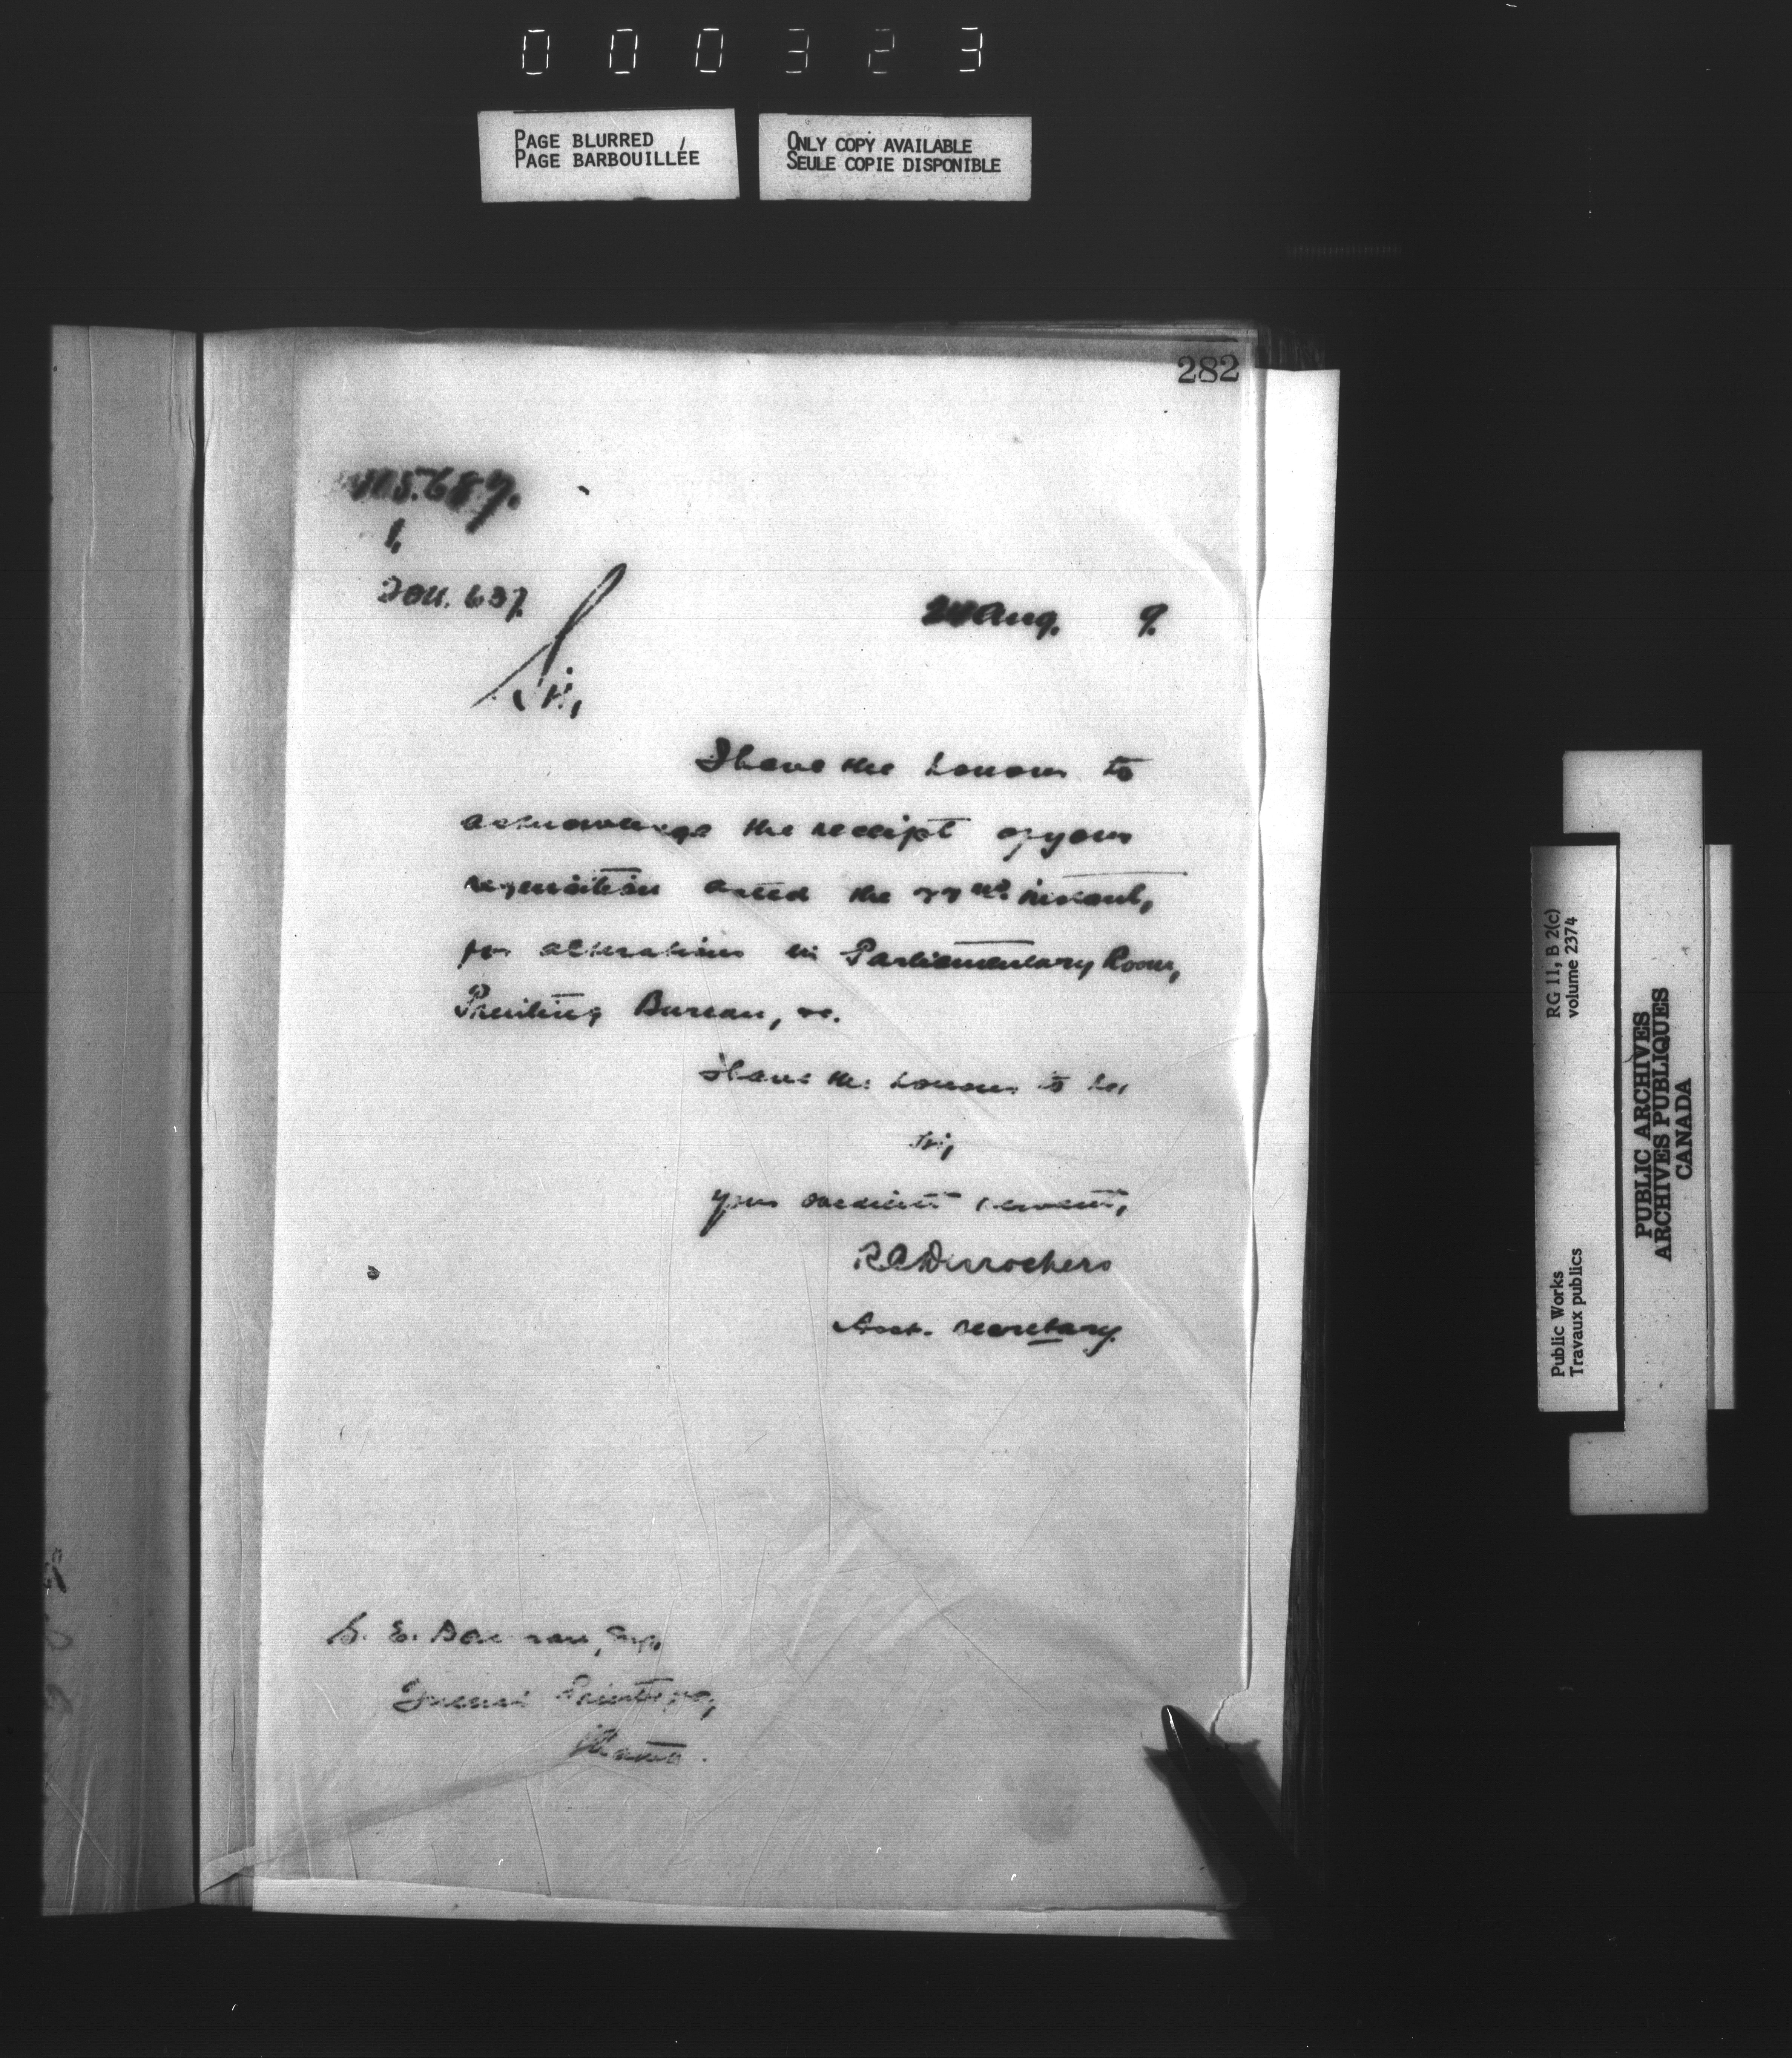 000323
PAGE BLURRED
PAGE BARBOUILLÉE
ONLY COPY AVAILABLE
SEULE COPIE DISPONIBLE
282
1,
Aug. 9.
Sir,
I have the honour to
acknowledge the receipt of your
requisition dated the 22nd instant,
for alterations in Parliamentary Room,
Printing Bureau, &c.
I have the honour to be,
Sir,
your obedient servant,
Desrochers
Asst. Secretary.
S. E. Dawson, Esq.
Queen's
Ottawa.
Public Works
Travaux publics
RG 11, B 2(c)
volume 2374
PUBLIC ARCHIVES
ARCHIVES PUBLIQUES
CANADA